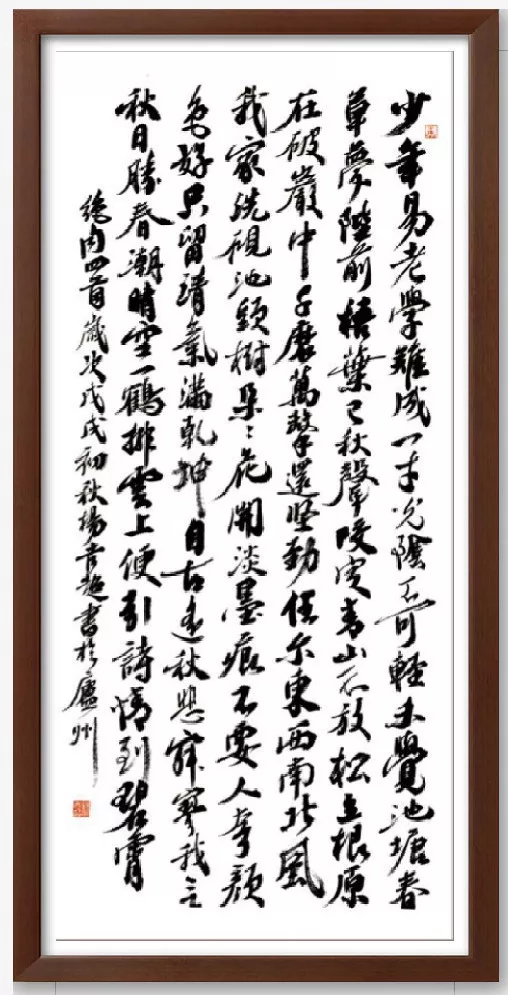 少年易老學難成一寸光陰不可輕未覺池塘春
草夢階前梧葉已秋聲咬定青山不放松立根原
在破巖中千磨萬擊還堅勁任尔東西南北風
我家洗硯池頭樹朵々花開淡墨痕不要人夸顏
色好只留清氣滿乾坤自古逢秋悲寂寥我言
秋日勝春潮晴空一鶴排雲上便引詩情到碧霄
絕句四首歲次戊戌初秋楊超書於廬州